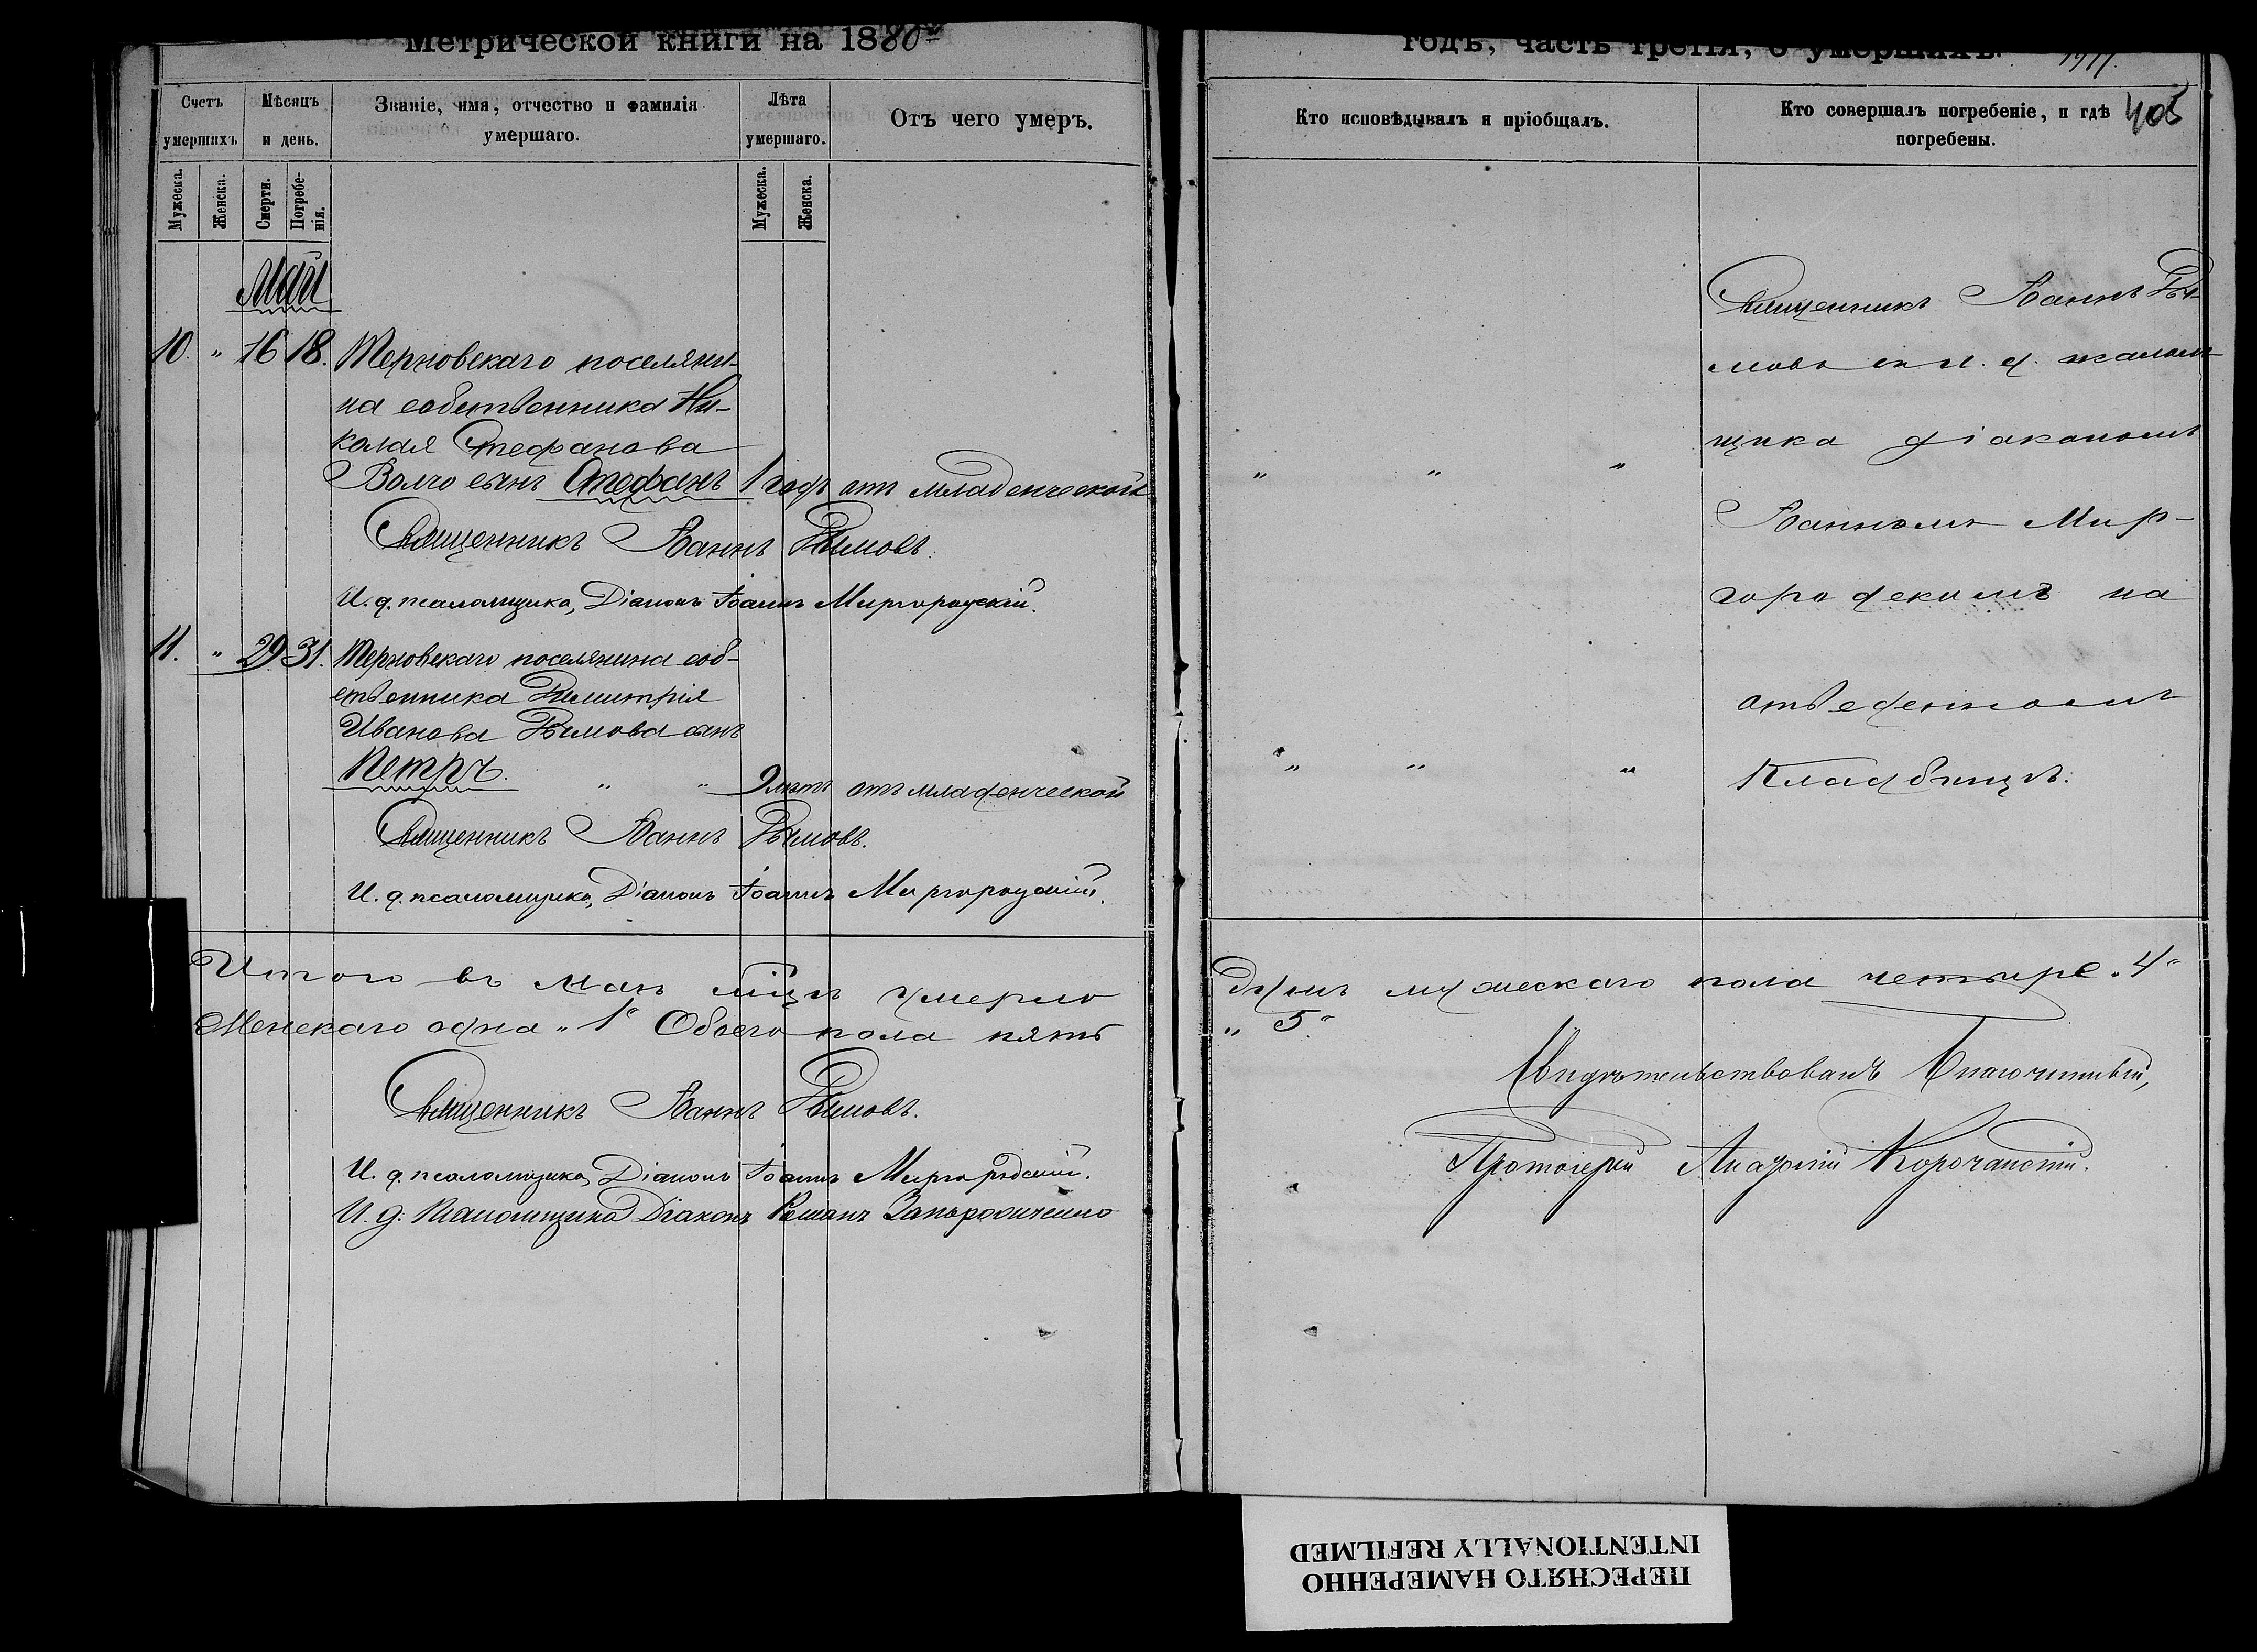 Метрической книги на 1880й
Счетъ умершихъ.
Мѣсяцъ и день.
Званіе, имя, отчество и фамилія умершаго.
Лѣта умершаго.
Отъ чего умеръ.
Мужеска.
Женска.
Смерти.
Погребенія.
Мужеска.
Женска.
Май
10. " 16 18. Терновскаго поселяни-
на собственника Ни-
колая Стефанова
Волчо сынъ Стефанъ 1 годъ отъ младенческой
Священникъ Іоаннъ Дымовъ.
И. д. псаломщика, Діаконъ Іоаннъ Миргородскій.
11. " 29 31. Терновскаго поселянина соб-
ственника Димитрія
Иванова Дымова сынъ
Петръ. " " 2 лѣтъ отъ младенческой
Священникъ Іоаннъ Дымовъ.
И. д. псаломщика, Діаконъ Іоаннъ Миргородскій.
Итого въ маѣ мѣсяцѣ умерло
Женскаго одна "1" Обоего пола пять
Священникъ Іоаннъ Дымовъ.
И. д. псаломщика, Діаконъ Іоаннъ Миргородскій.
И. д: Псаломщика Діаконъ Романъ
годъ, часть третія, о умершихъ.
405
Кто исповѣдывалъ и пріобщалъ.
Кто совершалъ погребеніе, и гдѣ погребены.
Священникъ Іоаннъ Ды-
мовъ съ и. д. псалом-
щика діакономъ
" " "
Іоанномъ Мир-
городскимъ на
отведенномъ
" " "
Кладбищѣ.
душъ мужескаго пола четыре "4"
" 5"
Свидѣтельствовалъ Благочинный,
Протоіерей Корочанскій.
ПЕРЕСНЯТО НАМЕРЕННО
INTENTIONALLY REFILMED